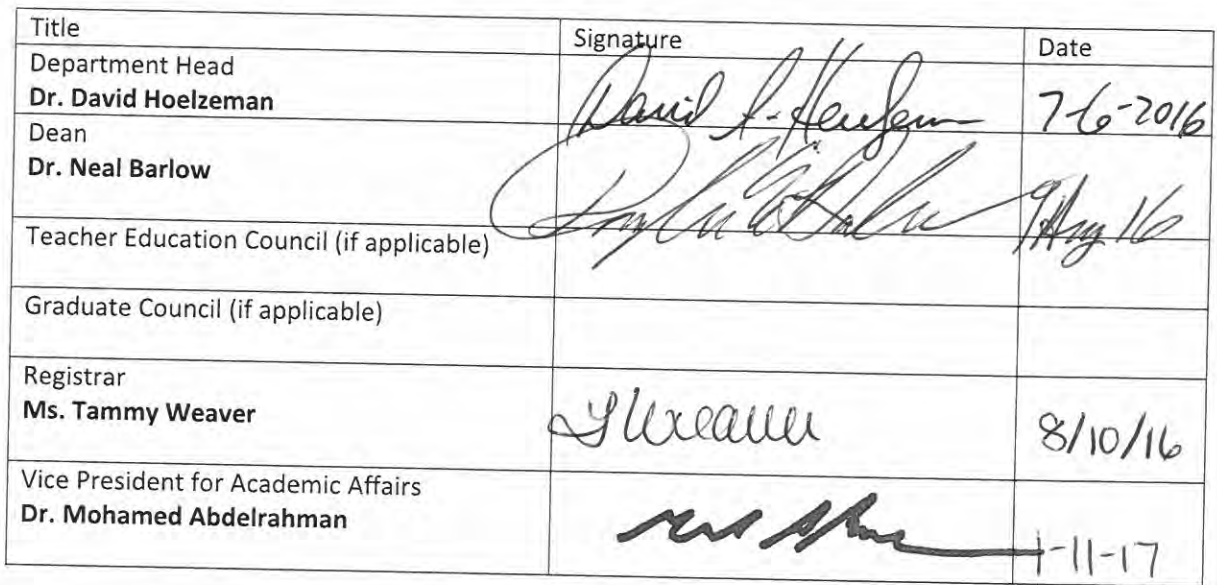 Title Signature Date
Department Head
Dr. David Hoelzeman David 7-6-2016
Dean
Dr. Neal Barlow 9 Aug 16
Teacher Education Council (if applicable)
Graduate Council (if applicable)
Registrar
Ms. Tammy Weaver TWeaver 8/10/16
Vice President for Academic Affairs
Dr. Mohamed Abdelrahman 1-11-17